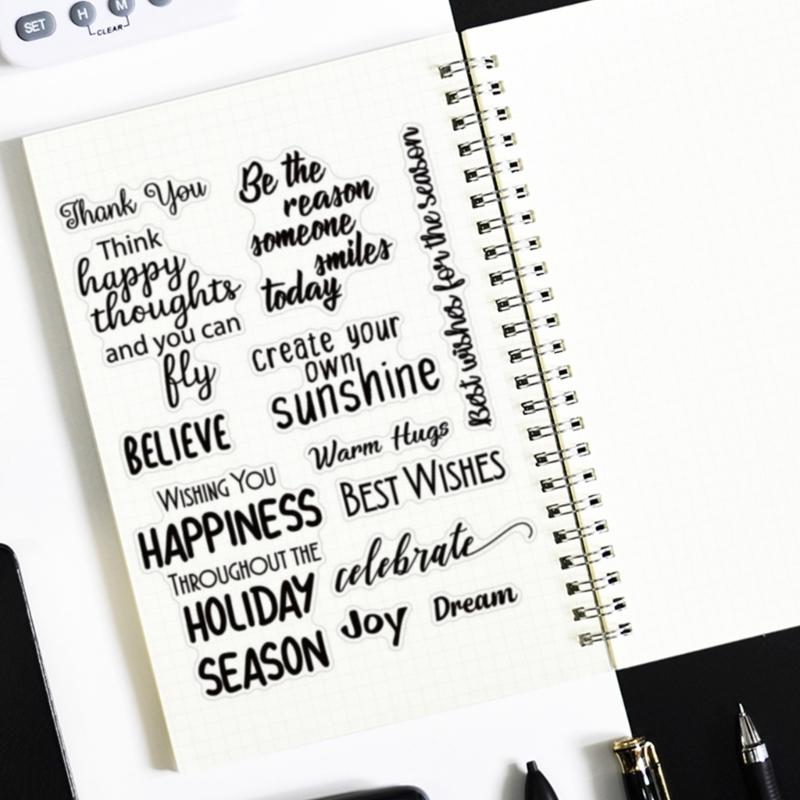 SET
H
M
CLEAR
Thank You
Think
happy
thoughts
and you can
fly
BELIEVE
WISHING YOU
HAPPINESS
THROUGHOUT THE
HOLIDAY
SEASON
Be the
reason
someone
smiles
today
create your
own
sunshine
Warm Hugs
BEST WISHES
celebrate
Joy
Dream
Best wishes for the season